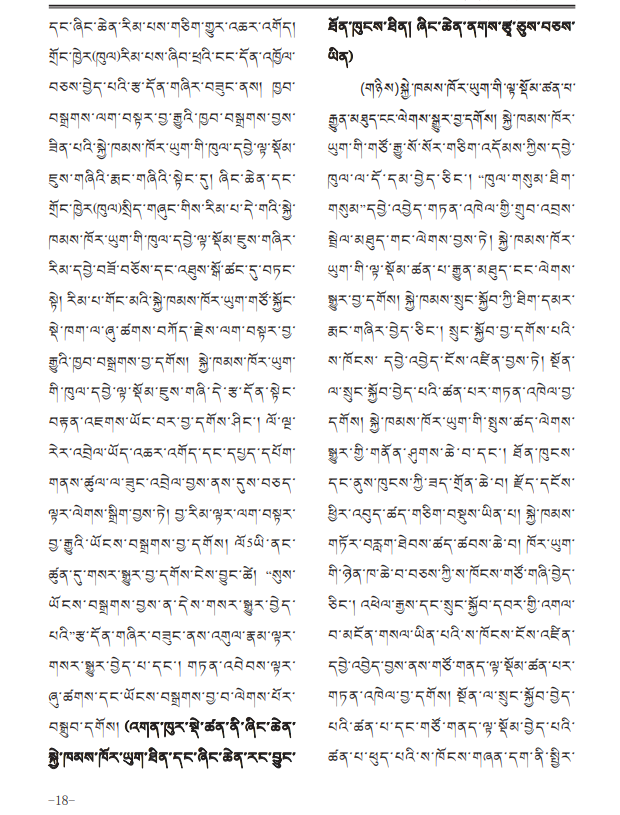 དང་ཞིང་ཆེན་རིམ་པས་གཅིག་གྱུར་འཆར་འགོད།
གྲོང་ཁྱེར(ཁུལ)རིམ་པས་ཞིབ་ཕྲའི་ངང་དོན་འཁྱོལ་
བཅས་བྱེད་པའི་རྩ་དོན་གཞིར་བཟུང་ནས། ཁྱབ་
བསྒྲགས་ལག་བསྟར་བྱ་རྒྱུའི་ཁྱབ་བསྒྲགས་བྱས་
ཟིན་པའི་སྐྱེ་ཁམས་ཁོར་ཡུག་གི་ཁུལ་དབྱེ་ལྟ་སྡོམ་
ཇུས་གཞིའི་རྨང་གཞིའི་སྟེང་དུ། ཞིང་ཆེན་དང་
གྲོང་ཁྱེར(ཁུལ)སྲིད་གཞུང་གིས་རིམ་པ་དེ་གའི་སྐྱེ་
ཁམས་ཁོར་ཡུག་གི་ཁུལ་དབྱེ་ལྟ་སྡོམ་ཇུས་གཞིར་
རིམ་དབྱེ་བཟོ་བཅོས་དང་འཐུས་སྒོ་ཚང་དུ་བཏང་
སྟེ། རིམ་པ་གོང་མའི་སྐྱེ་ཁམས་ཁོར་ཡུག་གཙོ་སྐྱོང་
སྡེ་ཁག་ལ་ཞུ་ཚགས་བཀོད་རྗེས་ལག་བསྟར་བྱ་
རྒྱུའི་ཁྱབ་བསྒྲགས་བྱ་དགོས། སྐྱེ་ཁམས་ཁོར་ཡུག་
གི་ཁུལ་དབྱེ་ལྟ་སྡོམ་ཇུས་གཞི་དེ་རྩ་དོན་སྟེང་
བརྟན་འཇགས་ཡོང་བར་བྱ་དགོས་ཤིང་། ལོ་ལྔ་
རེར་འབྲེལ་ཡོད་འཆར་འགོད་དང་དཔྱད་དཔོག་
གནས་ཚུལ་ལ་ཟུང་འབྲེལ་བྱས་ནས་དུས་བཅད་
ལྟར་ལེགས་སྒྲིག་བྱས་ཏེ། བྱ་རིམ་ལྟར་ལག་བསྟར་
བྱ་རྒྱུའི་ཡོངས་བསྒྲགས་བྱ་དགོས། ལོ5ཡི་ནང་
ཚུན་དུ་གསར་སྒྱུར་བྱ་དགོས་ངེས་བྱུང་ཚེ། “སུས་
ཡོངས་བསྒྲགས་བྱས་ན་དེས་གསར་སྒྱུར་བྱེད་
པའི”རྩ་དོན་གཞིར་བཟུང་ནས་འགུལ་རྣམ་ལྟར་
གསར་སྒྱུར་བྱེད་པ་དང་། གཏན་འབེབས་ལྟར་
ཞུ་ཚགས་དང་ཡོངས་བསྒྲགས་བྱ་བ་ལེགས་པོར་
བསྒྲུབ་དགོས། (འགན་ཁུར་སྡེ་ཚན་ནི་ཞིང་ཆེན་
སྐྱེ་ཁམས་ཁོར་ཡུག་ཐིན་དང་ཞིང་ཆེན་རང་བྱུང་
ཐོན་ཁུངས་ཐིན། ཞིང་ཆེན་ནགས་རྩྭ་ཅུས་བཅས་
ཡིན)
(གཉིས)སྐྱེ་ཁམས་ཁོར་ཡུག་གི་ལྟ་སྡོམ་ཚན་པ་
རྒྱུན་མཐུད་ངང་ལེགས་སྒྱུར་བྱ་དགོས། སྐྱེ་ཁམས་ཁོར་
ཡུག་གི་གཙོ་རྒྱུ་སོ་སོར་གཅིག་འདོམས་ཀྱིས་དབྱེ་
ཁུལ་ལ་དོ་དམ་བྱེད་ཅིང་། “ཁུལ་གསུམ་ཐིག་
གསུམ”དབྱེ་འབྱེད་གཏན་འཁེལ་གྱི་གྲུབ་འབྲས་
སྦྲེལ་མཐུད་གང་ལེགས་བྱས་ཏེ། སྐྱེ་ཁམས་ཁོར་
ཡུག་གི་ལྟ་སྡོམ་ཚན་པ་རྒྱུན་མཐུད་ངང་ལེགས་
སྒྱུར་བྱ་དགོས། སྐྱེ་ཁམས་སྲུང་སྐྱོབ་ཀྱི་ཐིག་དམར་
རྨང་གཞིར་བྱེད་ཅིང་། སྲུང་སྐྱོབ་བྱ་དགོས་པའི་
ས་ཁོངས་ དབྱེ་འབྱེད་ངོས་འཛིན་བྱས་ཏེ། སྔོན་
ལ་སྲུང་སྐྱོབ་བྱེད་པའི་ཚན་པར་གཏན་འཁེལ་བྱ་
དགོས། སྐྱེ་ཁམས་ཁོར་ཡུག་གི་སྤུས་ཚད་ལེགས་
སྒྱུར་གྱི་གནོན་ཤུགས་ཆེ་བ་དང་། ཐོན་ཁུངས་
དང་ནུས་ཁུངས་ཀྱི་ཟད་གྲོན་ཆེ་བ། རྫོད་དངོས་
ཕྱིར་འབུད་ཚད་གཅིག་བསྡུས་ཡིན་པ། སྐྱེ་ཁམས་
གཏོར་བརླག་ཐེབས་ཚད་ཚབས་ཆེ་བ། ཁོར་ཡུག་
གི་ཉེན་ཁ་ཆེ་བ་བཅས་ཀྱི་ས་ཁོངས་གཙོ་གཞི་བྱེད་
ཅིང་། འཕེལ་རྒྱས་དང་སྲུང་སྐྱོབ་དབར་གྱི་འགལ་
བ་མངོན་གསལ་ཡིན་པའི་ས་ཁོངས་ངོས་འཛིན་
དབྱེ་འབྱེད་བྱས་ནས་གཙོ་གནད་ལྟ་སྡོམ་ཚན་པར་
གཏན་འཁེལ་བྱ་དགོས། སྔོན་ལ་སྲུང་སྐྱོབ་བྱེད་
པའི་ཚན་པ་དང་གཙོ་གནད་ལྟ་སྡོམ་བྱེད་པའི་
ཚན་པ་ཕུད་པའི་ས་ཁོངས་གཞན་དག་ནི་སྤྱིར་
-18-